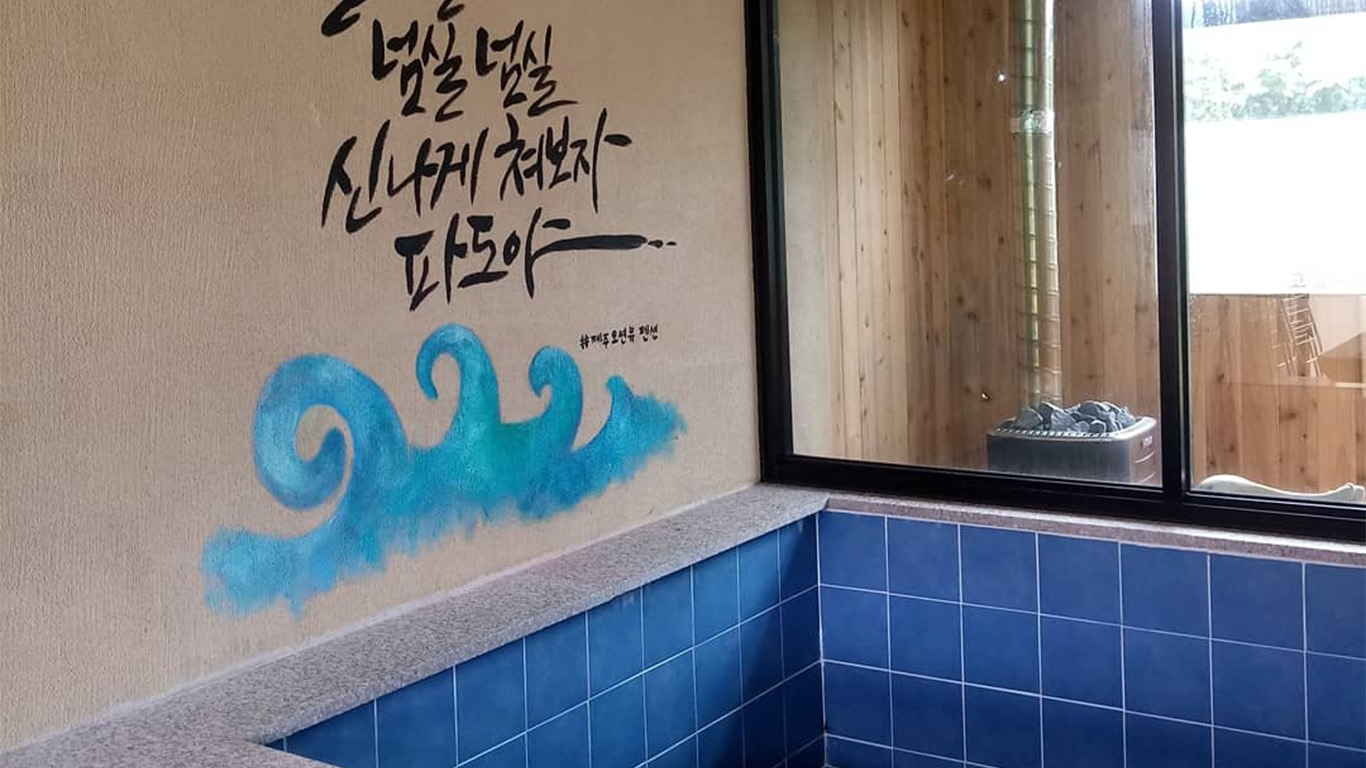 넘실 넘실
신나게 쳐보자
파도야
#제주오션뷰펜션